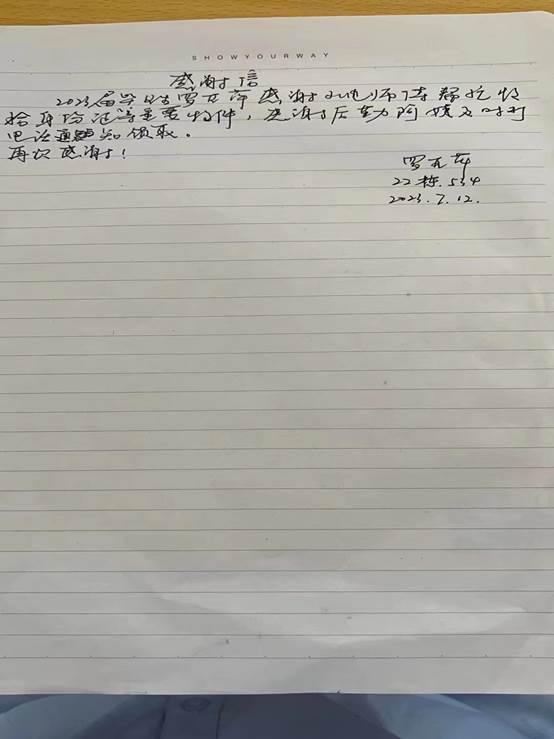 SHOWYOURWAY
感谢信
2023届学生罗元萍感谢水电师傅帮忙收
拾身份证等重要物件，感谢后勤阿姨及时打
电话通知领取。
再次感谢！
罗元萍
22栋.534
2023.7.12.